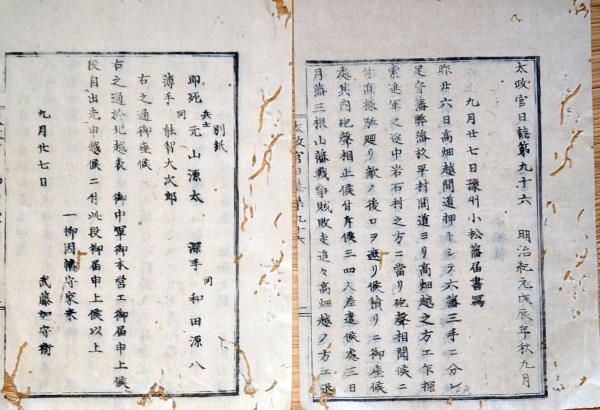 太政官日誌第九十六 明治紀元戊辰年秋九月
九月廿七日豫州小松藩届書寫
昨廿六日高畑越間道押トシテ六藩三手ニ分レ
足守藩弊藩杦平村間道ヨリ高畑越之方エ為探
索進軍之途中岩石村之方ニ當リ砲聲相聞候ニ
付直様駈廻リ敵ノ後ロヲ遮リ候積リニ御座候
處其内砲聲相止候付斥候三四人差遣候處三日
月藩三根山藩戦争賊敗走追々高畑越ノ方エ退
太政官日誌第九十六
別紙
兵士
即死 元山源太 深手 同 和田源八
薄手 同 能智大次郎
右之通御座候
右之通於北越表 御中軍御本営エ御届申上候
段自出先申越候ニ付此段御届申上候以上
一柳因幡守家来
九月廿七日 武藤加守衛